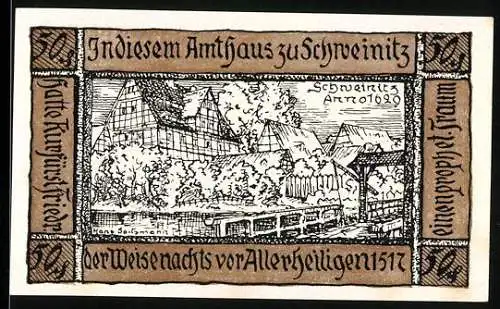 50
In diesem Amthaus zu Schweinitz
50
Hatte Kurfürst Friede
Schweinitz
Anno 1629
einen prophet. Traum
50
der Weise nachts vor Allerheiligen 1517
50